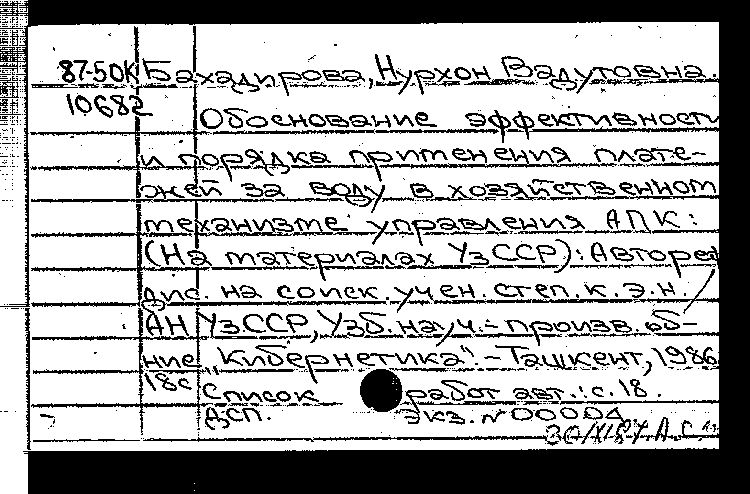 87-50К Бахадирова, Нурхон Вадутовна.
10682
Обоснование эффективности
и порядка применения плате-
жей за воду в хозяйственном
механизме управления АПК:
(На материалах УзССР): Автореф
дис. на соиск. учен. степ. к. э. н. /
АН УзССР, Узб. науч.-произв. об-
ние „Кибернетика". - Ташкент, 1986
18с Список работ авт.: с. 18.
ДСП. Экз. № 00004
30/XI87. А.С.